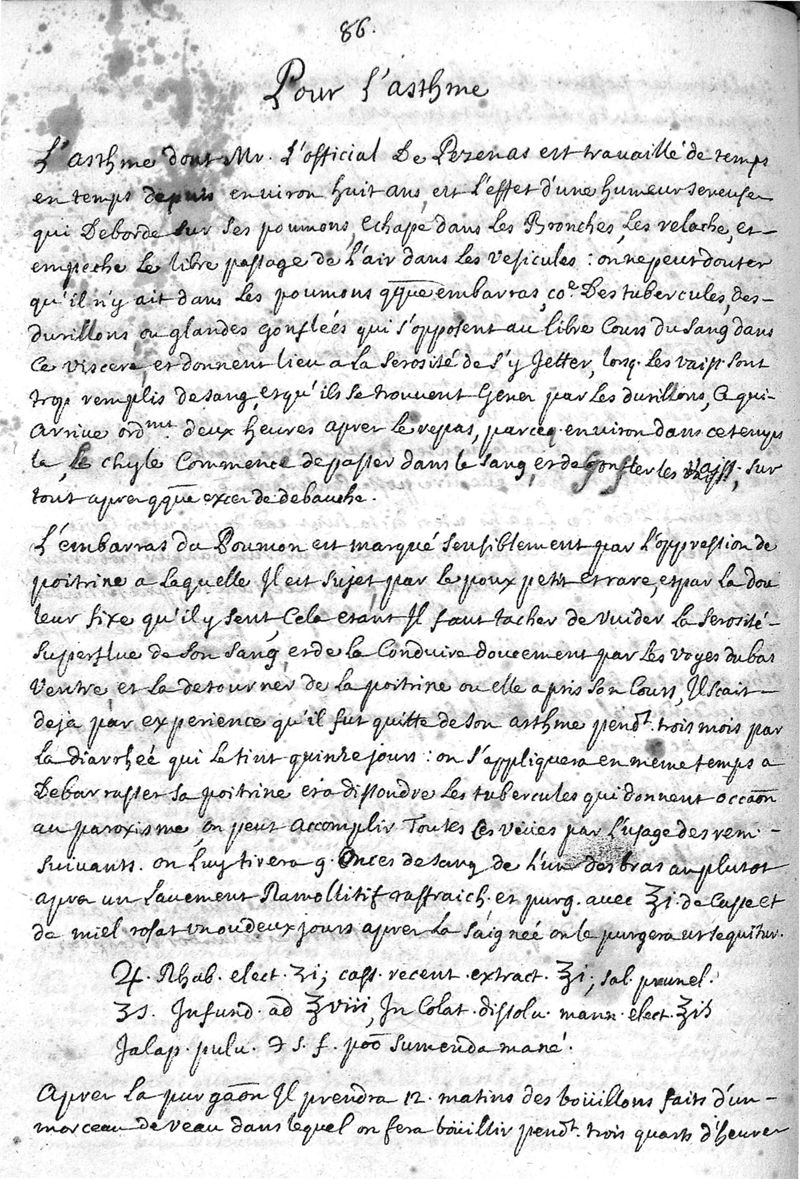 86.
Pour l'asthme
L'asthme dont Mr. L'official De Pezenas est travaillé de temps
en temps depuis environ huit ans, est L'effet d'une humeur sereuse
qui Deborde sur ses poumons, echape dans Les Bronches, Les relache, et
empeche Le libre passage de L'air dans Les vesicules : on ne peut douter
qu'il n'y ait dans Les poumons qque embarras, coe. Des tubercules, des
durillons ou glandes gonfleés qui s'opposent au libre Cours du sang dans
Ce viscere et donnent lieu a La serosité de s'y Jetter, lorsq. Les vaiss. sont
trop remplis de sang, et qu'ils se trouvent Genez par Les durillons, Ce qui
Arrive ordmt. deux heures aprez Le repas, parceq. environ dans ce temps
la, Le chyle Commence de passer dans le sang, et de Gonfler les vaiss., sur
tout aprez qque excez de debauche.
L'embarras du Poumon est marqué sensiblement par L'oppression de
poitrine a Laquelle Il est sujet, par Le poux petit et rare, et par La dou
leur fixe qu'il y sent Cela etant Il faut tacher de vuider La serosité
superflue de son sang, et de La Conduire doucement par Les voyes du bas
Ventre et La detourner de La poitrine ou elle a pris son Cours, Il scait
deja par experience qu'il fut quitte de son asthme pendt. trois mois par
La diarrheé qui Le tint quinze jours : on s'appliquera en meme temps a
Debarrasser sa poitrine et a dissoudre Les tubercules qui donnent occaōn
au paroxisme, on peut Accomplir Toutes Ces veües par L'usage des rem.
suivants. on Luy tirera 9. Onces de sang de L'un des bras au plutot
aprez un Lavement Ramollitif raffraich. et purg. avec ℥i. de Casse et
de miel rosat un ou deux jours aprez La saigneé on le purgera ut sequitur.
♃. Rhab. elect. ʒi; cass. recent. extract. ℥i; sal. prunel.
ʒs. Infund. ad ℥viii, In Colat. dissolv. mann. elect. ℥iß
Jalap. pulv. ℈ s. f. poō sumenda mané.
Aprez La purgaōn Il prendra 12. matins des boüillons faits d'un
morceau de veau dans Lequel on fera boüillir pendt. trois quarts d'heure